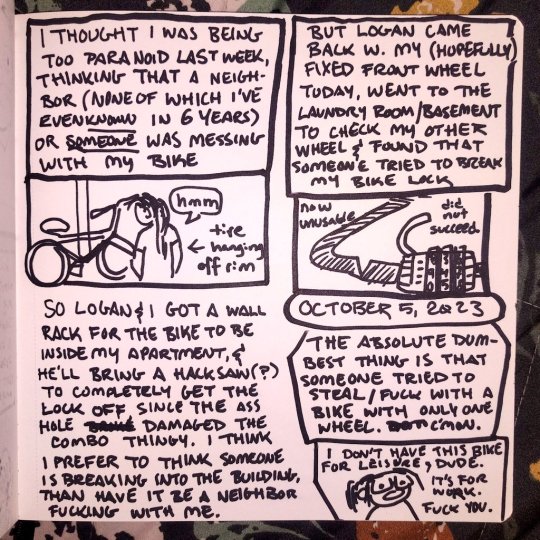 I THOUGHT I WAS BEING
TOO PARANOID LAST WEEK,
THINKING THAT A NEIGH-
BOR (NONE OF WHICH I'VE
EVEN KNOWN IN 6 YEARS)
OR SOMEONE WAS MESSING
WITH MY BIKE
hmm
tire
← hanging
off rim
SO LOGAN & I GOT A WALL
RACK FOR THE BIKE TO BE
INSIDE MY APARTMENT, &
HE'LL BRING A HACKSAW(?)
TO COMPLETELY GET THE
LOCK OFF, SINCE THE ASS
HOLE DAMAGED THE
COMBO THINGY. I THINK
I PREFER TO THINK SOMEONE
IS BREAKING INTO THE BUILDING,
THAN HAVE IT BE A NEIGHBOR
FUCKING WITH ME.
BUT LOGAN CAME
BACK W. MY (HOPEFULLY)
FIXED FRONT WHEEL
TODAY, WENT TO THE
LAUNDRY ROOM/BASEMENT
TO CHECK MY OTHER
WHEEL & FOUND THAT
SOMEONE TRIED TO BREAK
MY BIKE LOCK
now
unusable
did
not
succeed
OCTOBER 5, 2023
THE ABSOLUTE DUM-
BEST THING IS THAT
SOMEONE TRIED TO
STEAL/FUCK WITH A
BIKE WITH ONLY ONE
WHEEL. C'MON.
I DON'T HAVE THIS BIKE
FOR LEISURE, DUDE.
IT'S FOR
WORK.
FUCK YOU.